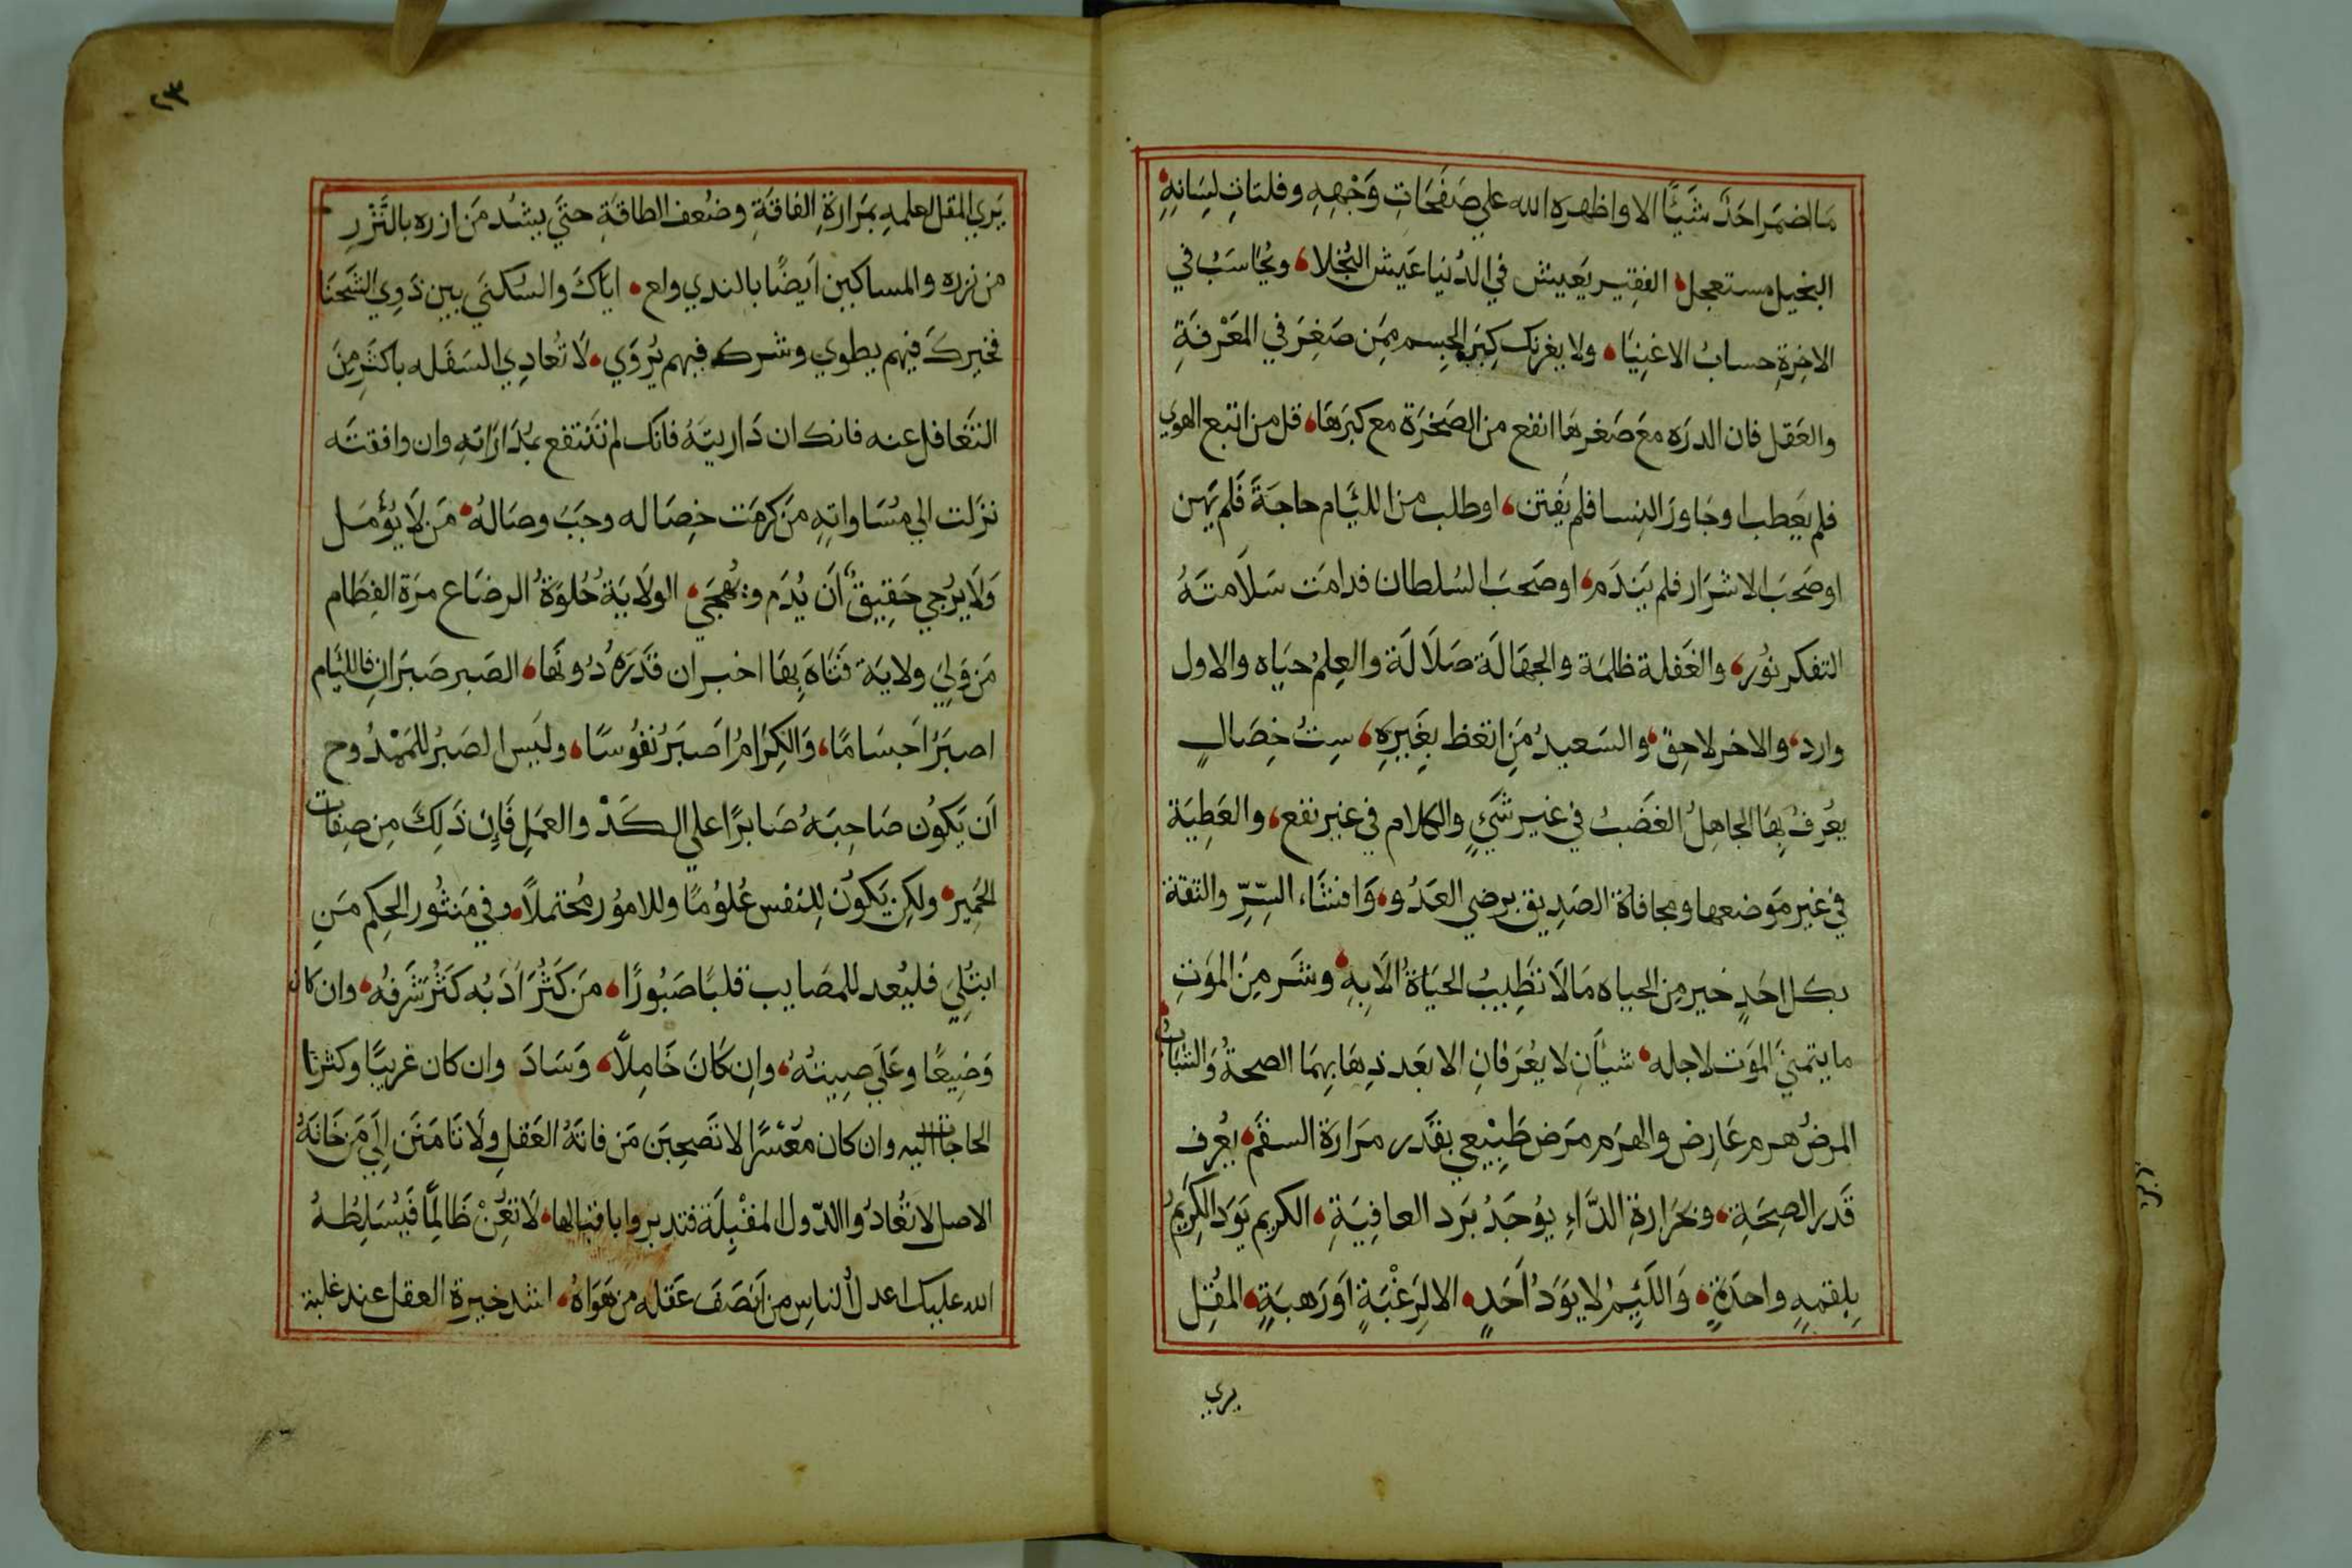 ما اضمر احد شيًا الا واظهره الله علي صفحات وجهه وفلتات لسانه
البخيل مستعجل الفقير يعيش في الدنيا عيش البخلا ويحاسب في
الاخرة حساب الاغنيا ولا يغرنك كبر الجسم ممن صغر في المعرفة
والعقل فان الدره مع صغرها انفع من الصخرة مع كبرها قل من اتبع الهوي
فلم يعطب او جاور النسا فلم يفتن او طلب من اللئام حاجة فلم يهن
او صحب الاشرار فلم يندم او صحب السلطان فدامت سلامته
التفكر نور والغفلة ظلمة والجهالة ضلالة والعلم حياه والاول
وارد والاخر لاحق والسعيد من اتعظ بغيره ست خصال
يعرف بها الجاهل الغضب في غير شيٍ والكلام في غير نفع والعطية
في غير موضعها ومجافاة الصديق برضي العدو وافشاء السرّ والثقة
بكل احد خير من الحياه ما لا تطيب الحياة الا به وشر من الموت
ما يتمني الموت لاجله شيأن لا يعرفان الا بعد ذهابهما الصحة والشباب
المرض هرم عارض والهرم مرض طبيعي بقدر مرارة السقم يعرف
قدر الصحة وبحرارة الدّاء يوجد برد العافية الكريم يود الكريم
بلقمه واحدة واللئيم لا يود احد الا لرغبة او رهبة المقل
يري
٢٣
يري المقل لعلمه بمرارة الفاقة وضعف الطاقة حتي يشد من ازره بالنّزر
من نزره والمساكين ايضًا بالندي واع اياك والسكني بين ذوي الشحنا
فخيرك فيهم يطوي وشرك فيهم يروي لا تعادي السفله باكثر من
التغافل عنه فانك ان داريته فانك لم تنتفع بمداراته وان وافقته
نزلت الي مساواته من كرمت خصاله وجب وصاله من لا يؤمل
ولا يرجي حقيق ان يذم ويهجي الولاية حلوة الرضاع مرة الفطام
من ولي ولاية فتاه بها اخبر ان قدره دونها الصبر صبران فاللئام
اصبر اجسامًا والكرام اصبر نفوسًا وليس الصبر الممدوح
ان يكون صاحبه صابرًا علي الكدّ والعمل فإن ذلك من صفات
الحمير ولكن يكون للنفس غلومًا وللامور محتملاً وفي منثور الحكم من
ابتلي فليعد للمصايب قلبًا صبورًا من كثر أدبه كثر شرفه وان كان
وضيعًا وعلي صيته وان كان خاملاً وساد وان كان غريبًا وكثرت
الحاجات اليه وان كان معسرًا لا تصحبن من فاته العقل ولا تامنن إلي من خانه
الاصل لا تعادوا الدّول المقبلة فتدبروا باقبالها لا تعن ظالمًا فيسلطه
الله عليك اعدل الناس من أنصف عقله من هواه اشد خيرة العقل عند غلبة